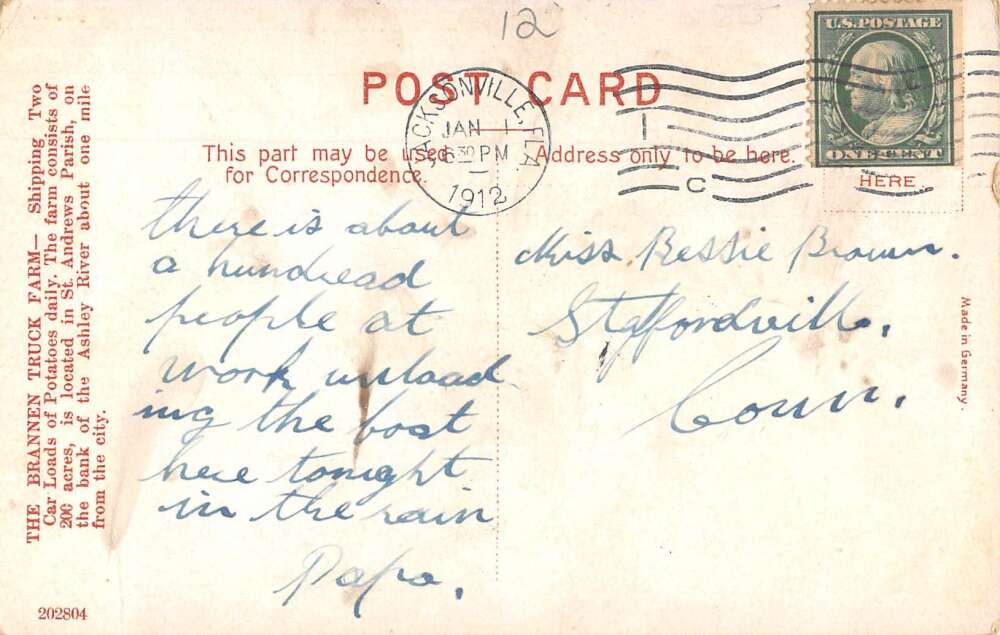 12
POST CARD
U.S. POSTAGE
ONE CENT
HERE
JACKSONVILLE, FLA.
JAN 1
630 PM
1912
C
This part may be used
for Correspondence.
Address only to be here.
THE BRANNEN TRUCK FARM— Shipping Two
Car Loads of Potatoes daily. The farm consists of
200 acres, is located in St. Andrews Parish, on
the bank of the Ashley River about one mile
from the city.
there is about
a hundread
people at
work unload
ing the boat
here tonight
in the rain
Papa.
Miss Bessie Brown.
Staffordville,
Conn.
Made in Germany.
202804